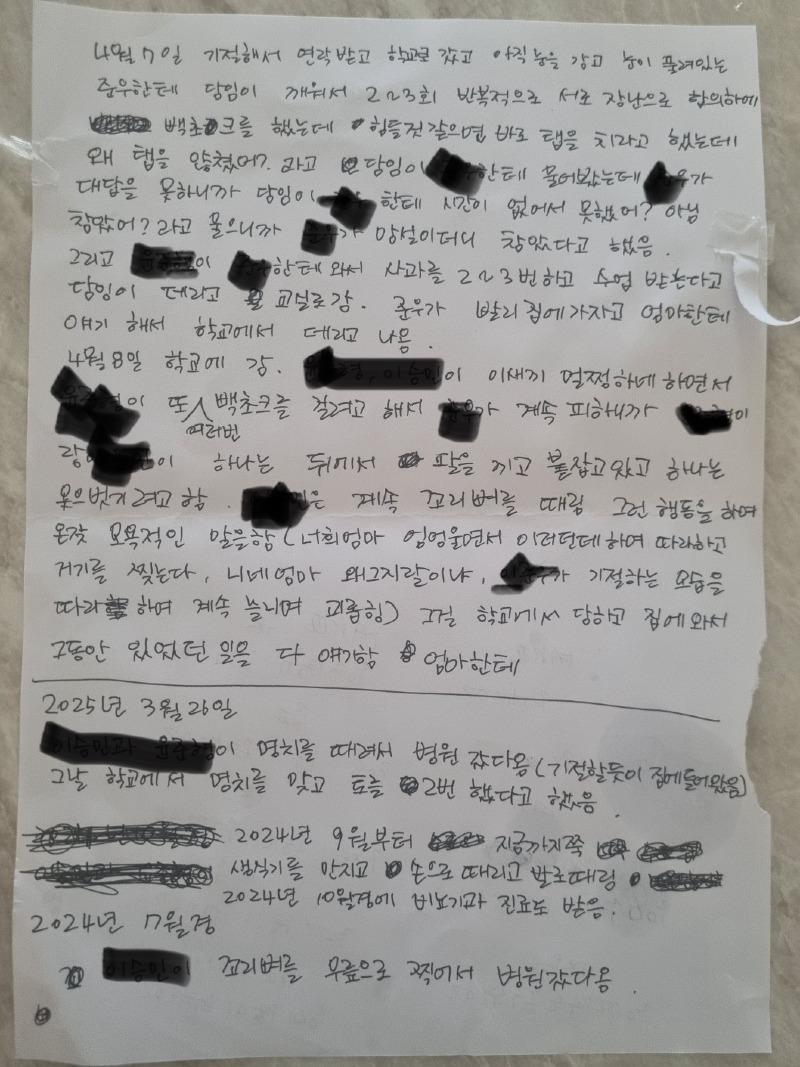 4월 7일 기절해서 연락받고 학교로 갔고 아직 눈을 감고 눈이 풀려있는
준우한테 담임이 깨워서 2~3회 반복적으로 서로 장난으로 합의하에
백초크를 했는데 힘들것 같으면 바로 탭을 치라고 했는데
왜 탭을 않쳤어? 라고 담임이 한테 물어봤는데
대답을 못하니까 담임이 한테 시간이 없어서 못했어? 아님
참았어? 라고 물으니까 망설이더니 참았다고 했음.
그리고 이 한테 와서 사과를 2~3번하고 수업 받는다고
담임이 데리고 교실로 감. 준우가 빨리 집에 가자고 엄마한테
얘기 해서 학교에서 데리고 나옴.
4월 8일 학교에 감. 이 이새끼 멀쩡하네 하면서
이 또 여러번 백초크를 걸려고 해서 계속 피하니까
랑 이 하나는 뒤에서 팔을 끼고 붙잡고 있고 하나는
옷을 벗기려고 함. 은 계속 꼬리뼈를 때림 그런 행동을 하며
온갖 모욕적인 말을함 (너희엄마 엉엉울면서 이러던데 하며 따라하고
저기를 찢는다, 니네엄마 왜그지랄이냐, 가 기절하는 모습을
따라 하며 계속 놀리며 괴롭힘) 그걸 학교에서 당하고 집에 와서
그동안 있었던 일을 다 얘기함 엄마한테
2025년 3월 26일
이 명치를 때려서 병원 갔다옴 (기절할듯이 집에 들어왔음)
그날 학교에서 명치를 맞고 토를 2번 했다고 했음.
2024년 9월부터 지금까지쭉
생식기를 만지고 손으로 때리고 발로때림
2024년 10월경에 비뇨기과 진료도 받음.
2024년 7월경
꼬리뼈를 무릎으로 찍어서 병원갔다옴.